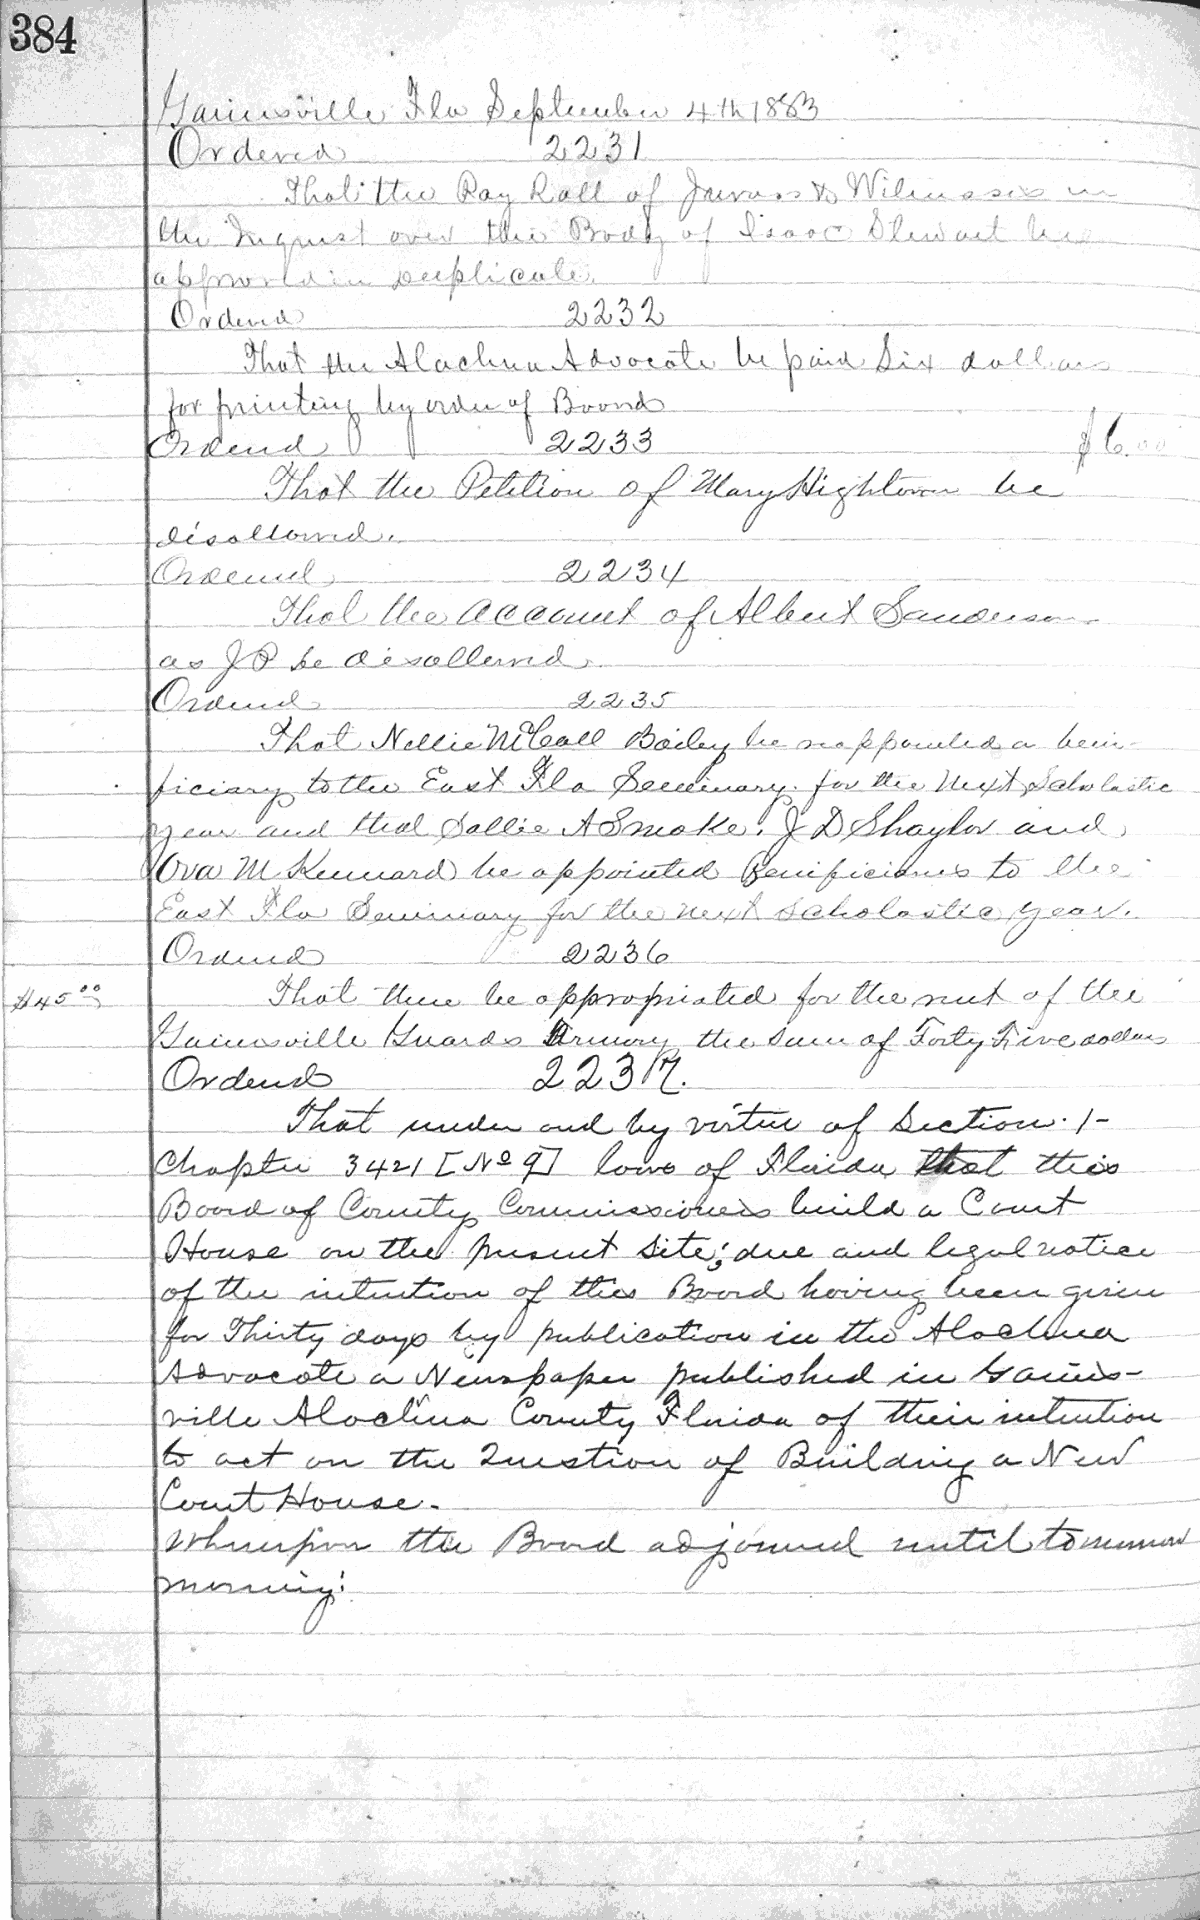 384
Gainesville Fla September 4th 1883
Ordered 2231
That the Pay Roll of Jurors & Witnesses in
the Inquest over the Body of Isaac Stewart be
approved in duplicate.
Ordered 2232
That the Alachua Advocate be paid Six dollars
for printing by order of Board
$6.00
Ordered 2233
That the Petition of Mary Hightower be
disallowed.
Ordered 2234
That the account of Albert Sanderson
as J P be disallowed.
Ordered 2235
That Nellie McCall Bailey be reappointed a bene-
ficiary to the East Fla Seminary for the next Scholastic
year and that Sallie A Smoke, J D Shaylor and
Ova M Kennard be appointed Benificiaries to the
East Fla Seminary for the next Scholastic year.
Ordered 2236
$45.00 That there be appropriated for the rent of the
Gainsville Guards Armory the sum of Forty Five dollars
Ordered 2237.
That under and by virtue of Section 1-
Chapter 3421 [No 9] laws of Florida that this
Board of County Commissioners build a Court
House on the present site; due and legal notice
of the intention of this Board having been given
for Thirty days by publication in the Alachua
Advocate a Newspaper published in Gains-
ville Alachua County Florida of their intention
to act on the Question of Building a New
Court House.
Whereupon the Board adjourned until tomorrow
morning.